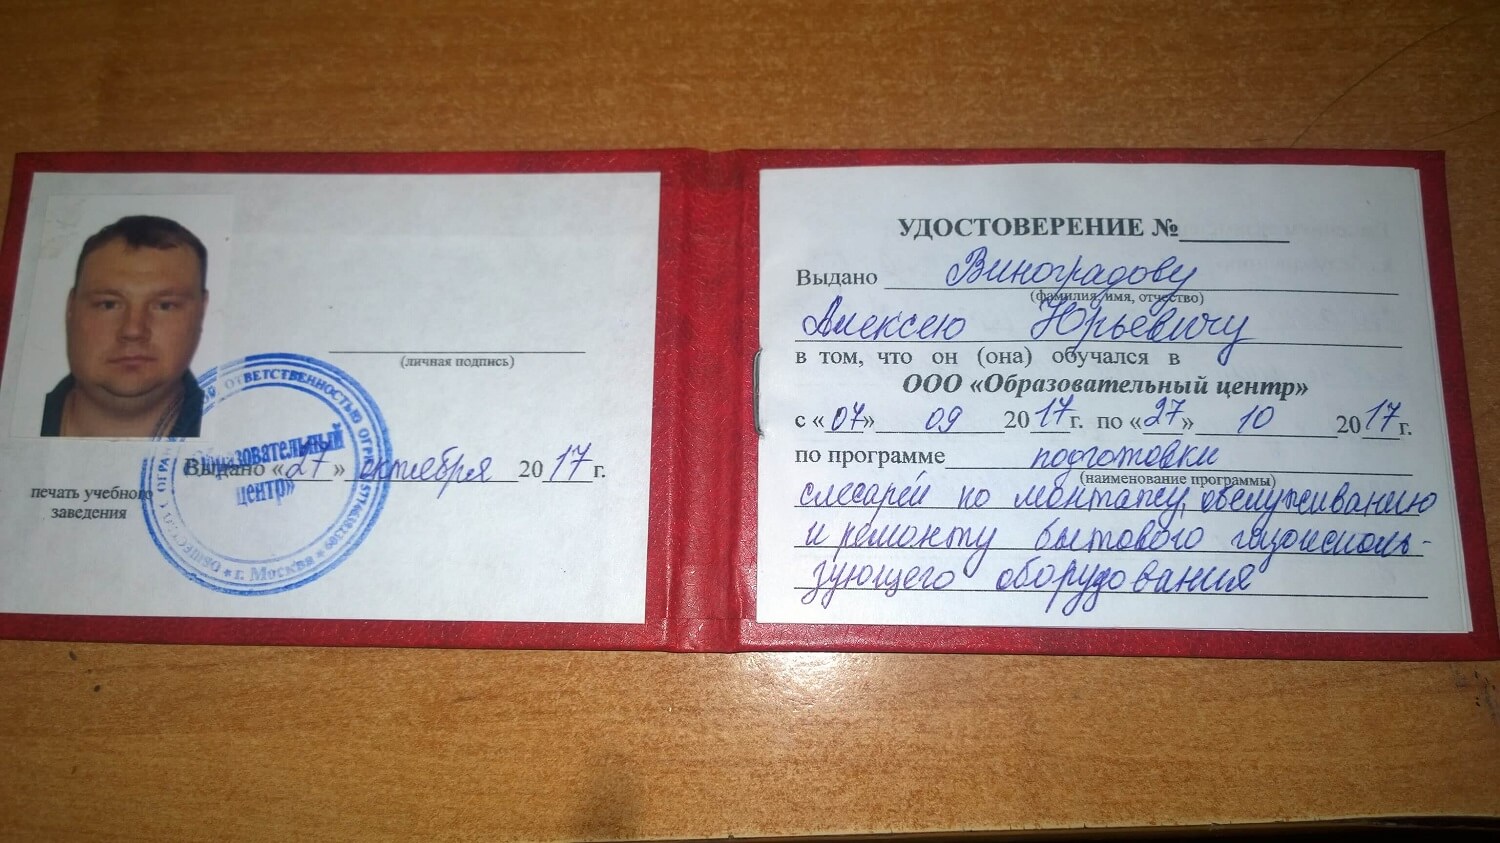 (личная подпись)
Выдано «27» октября 2017г.
печать учебного
заведения
ОТВЕТСТВЕННОСТЬЮ
Образовательный
центр»
ОБЩЕСТВО
* г. Москва *
УДОСТОВЕРЕНИЕ №
Выдано Виноградову
(фамилия, имя, отчество)
Алексею Юрьевичу
в том, что он (она) обучался в
ООО «Образовательный центр»
с «07» 09 2017г. по «27» 10 2017г.
по программе подготовки
(наименование программы)
слесарей по монтажу, обслуживанию
и ремонту бытового газоисполь-
зующего оборудования